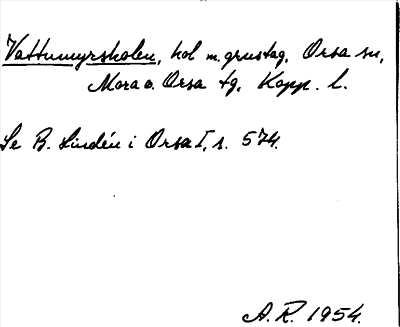 Vattumyrskolen, kol m. grustag, Orsa sn,
Mora o. Orsa tg, Kopp. l.
Se B. Lindén i Orsa I, s. 574.
A. R. 1954.